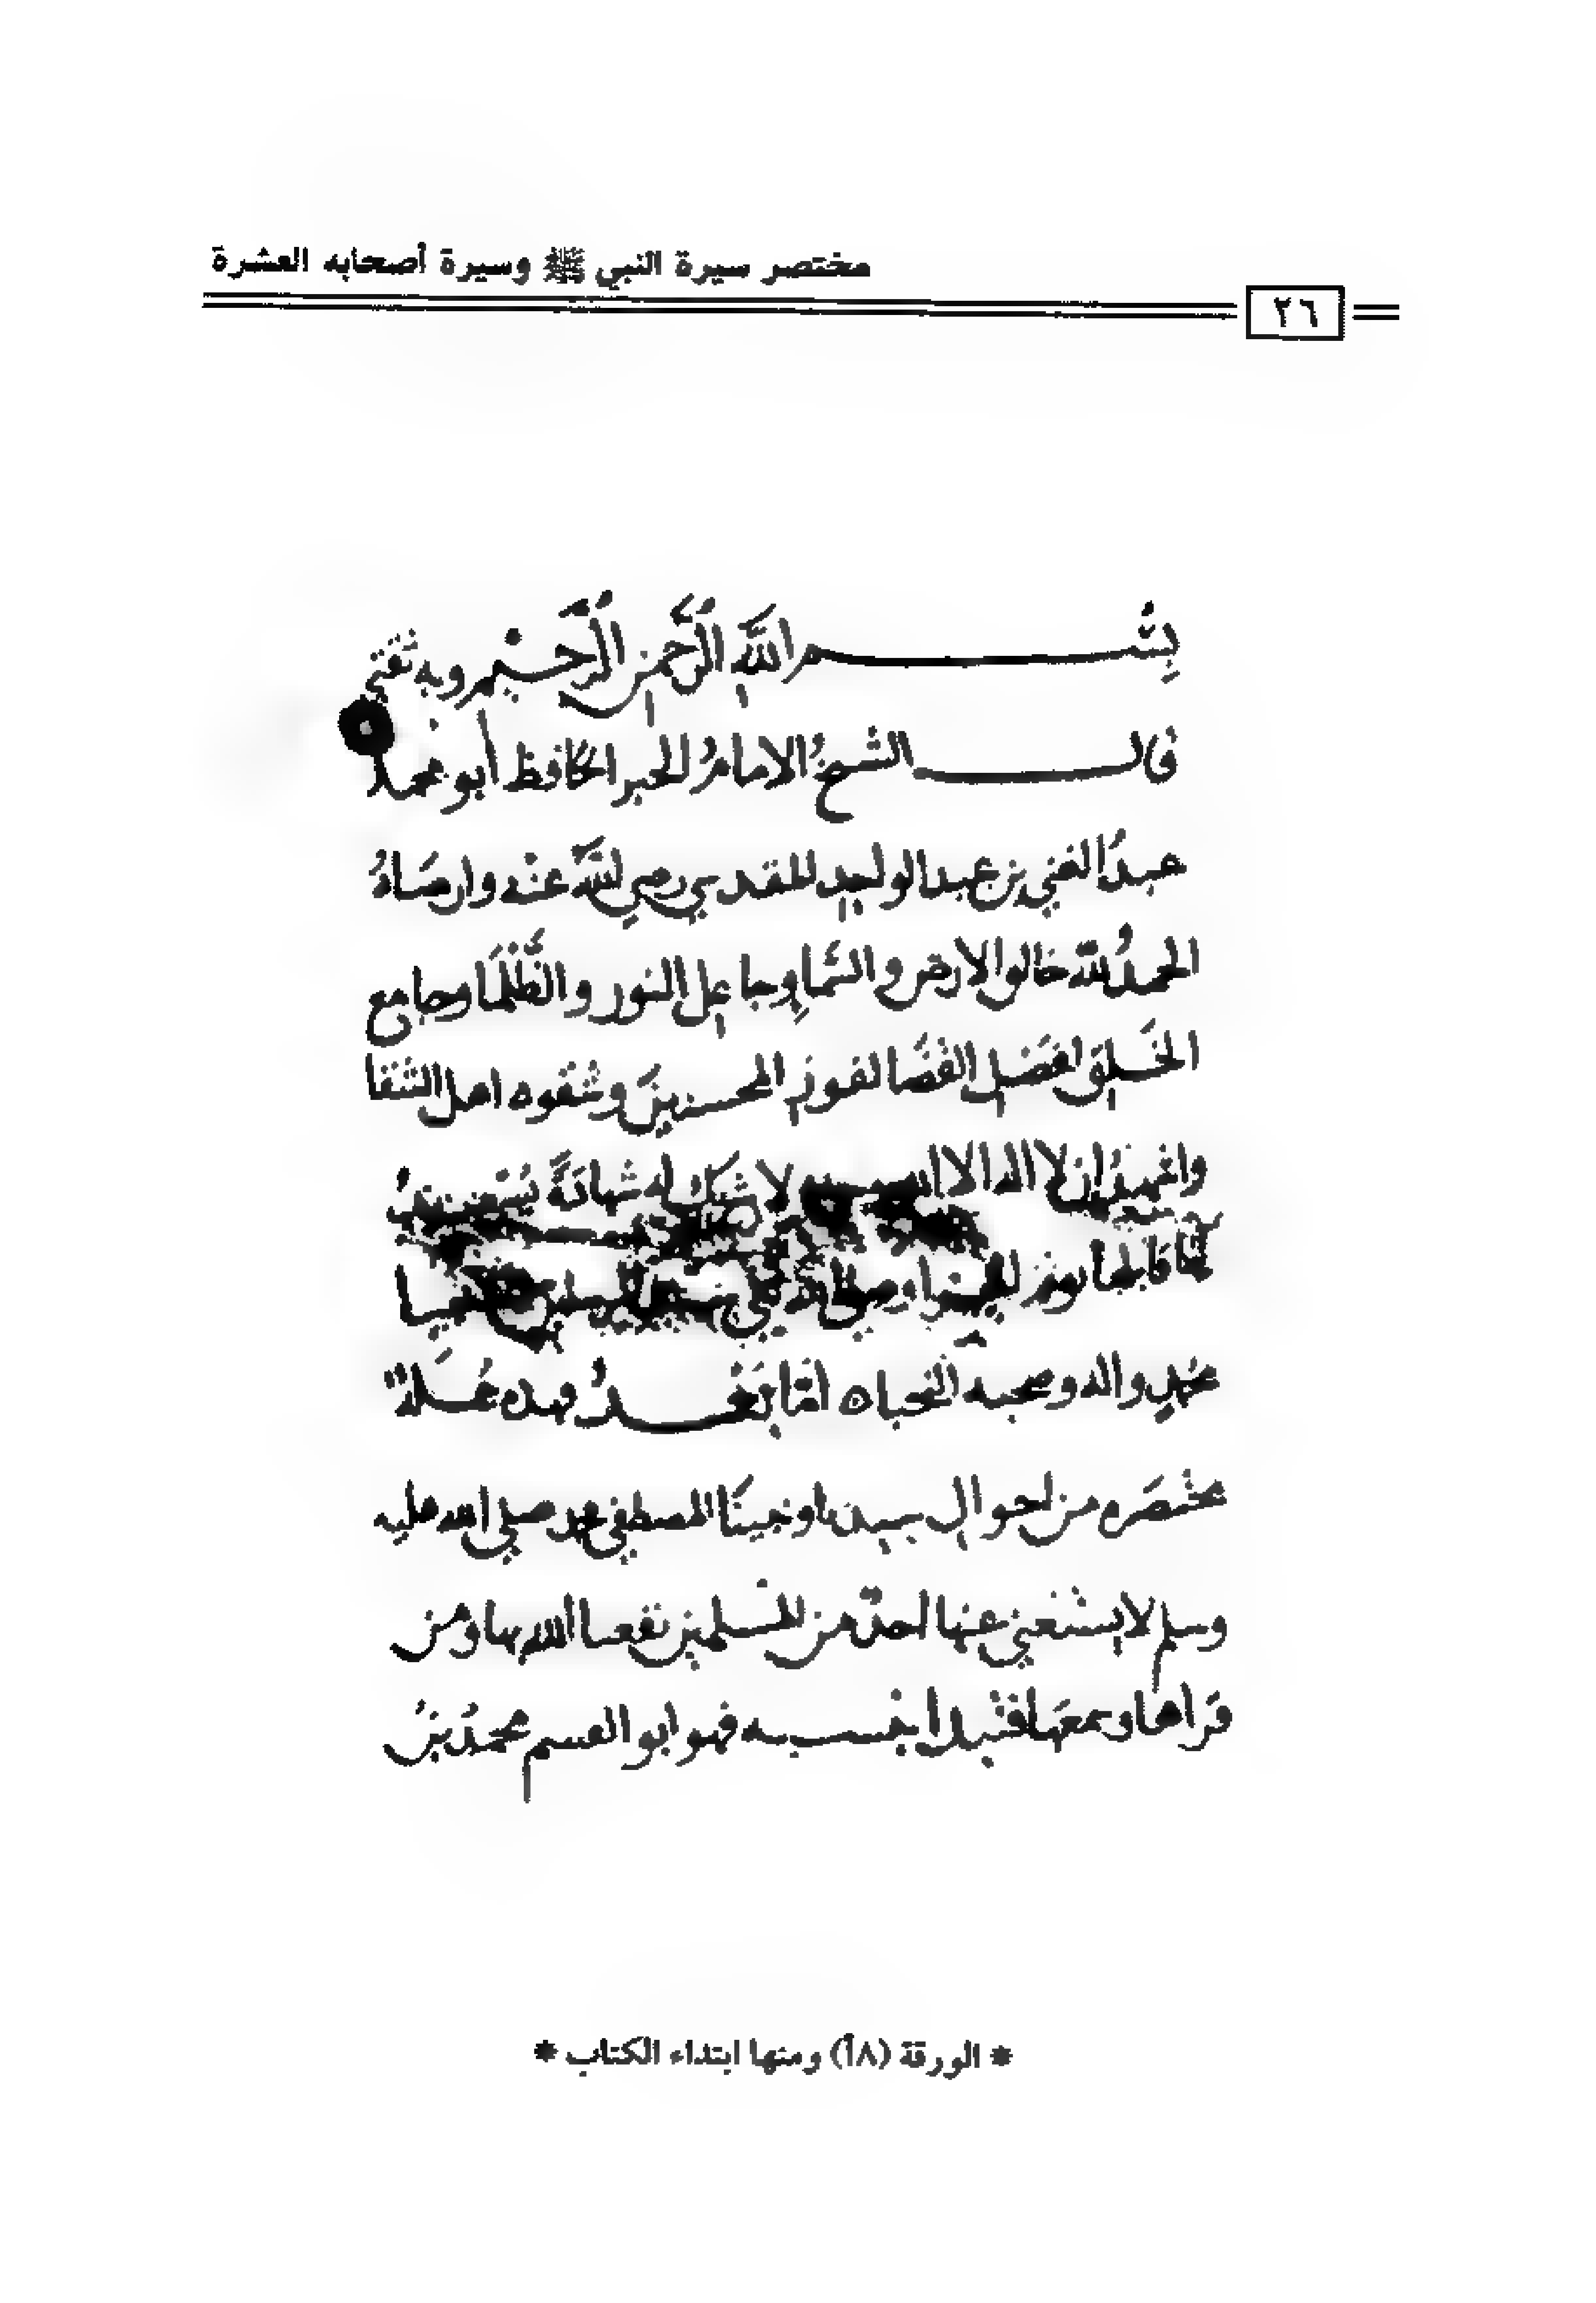 مختصر سيرة النبي ﷺ وسيرة أصحابه العشرة
٢٦
بسم الله الرحمن الرحيم وبه ثقتي
قال الشيخ الامام الحبر الحافظ أبو محمد
عبد الغني بن عبد الواحد المقدسي رضي الله عنه وارضاه
الحمد لله خالق الارض والسما وجاعل النور والظلما وجامع
الخلق لفصل القضا لفوز المحسنين وشقوه اهل الشقا
واشهد ان لا اله الا الله لا شريك له شهادة
وصلى الله على سيد المرسلين
محمد واله وصحبه النجباه اما بعد فهذه جملة
مختصره من احوال سيدنا ونبينا المصطفى محمد صلى الله عليه
وسلم لا يستغني عنها احد من المسلمين نفعنا الله بها ومن
قراها وسمعها فنبدا بنسبه فهو ابو القسم محمد بن
* الورقة (٨أ) ومنها ابتداء الكتاب *